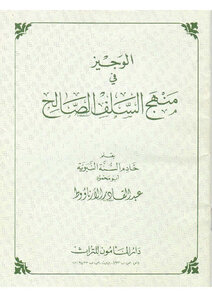 الوجيز
في
منهج السلف الصالح
بقلم
خادم السنة النبوية
أبو محمود
عبد القادر الأرناؤوط
دار المأمون للتراث